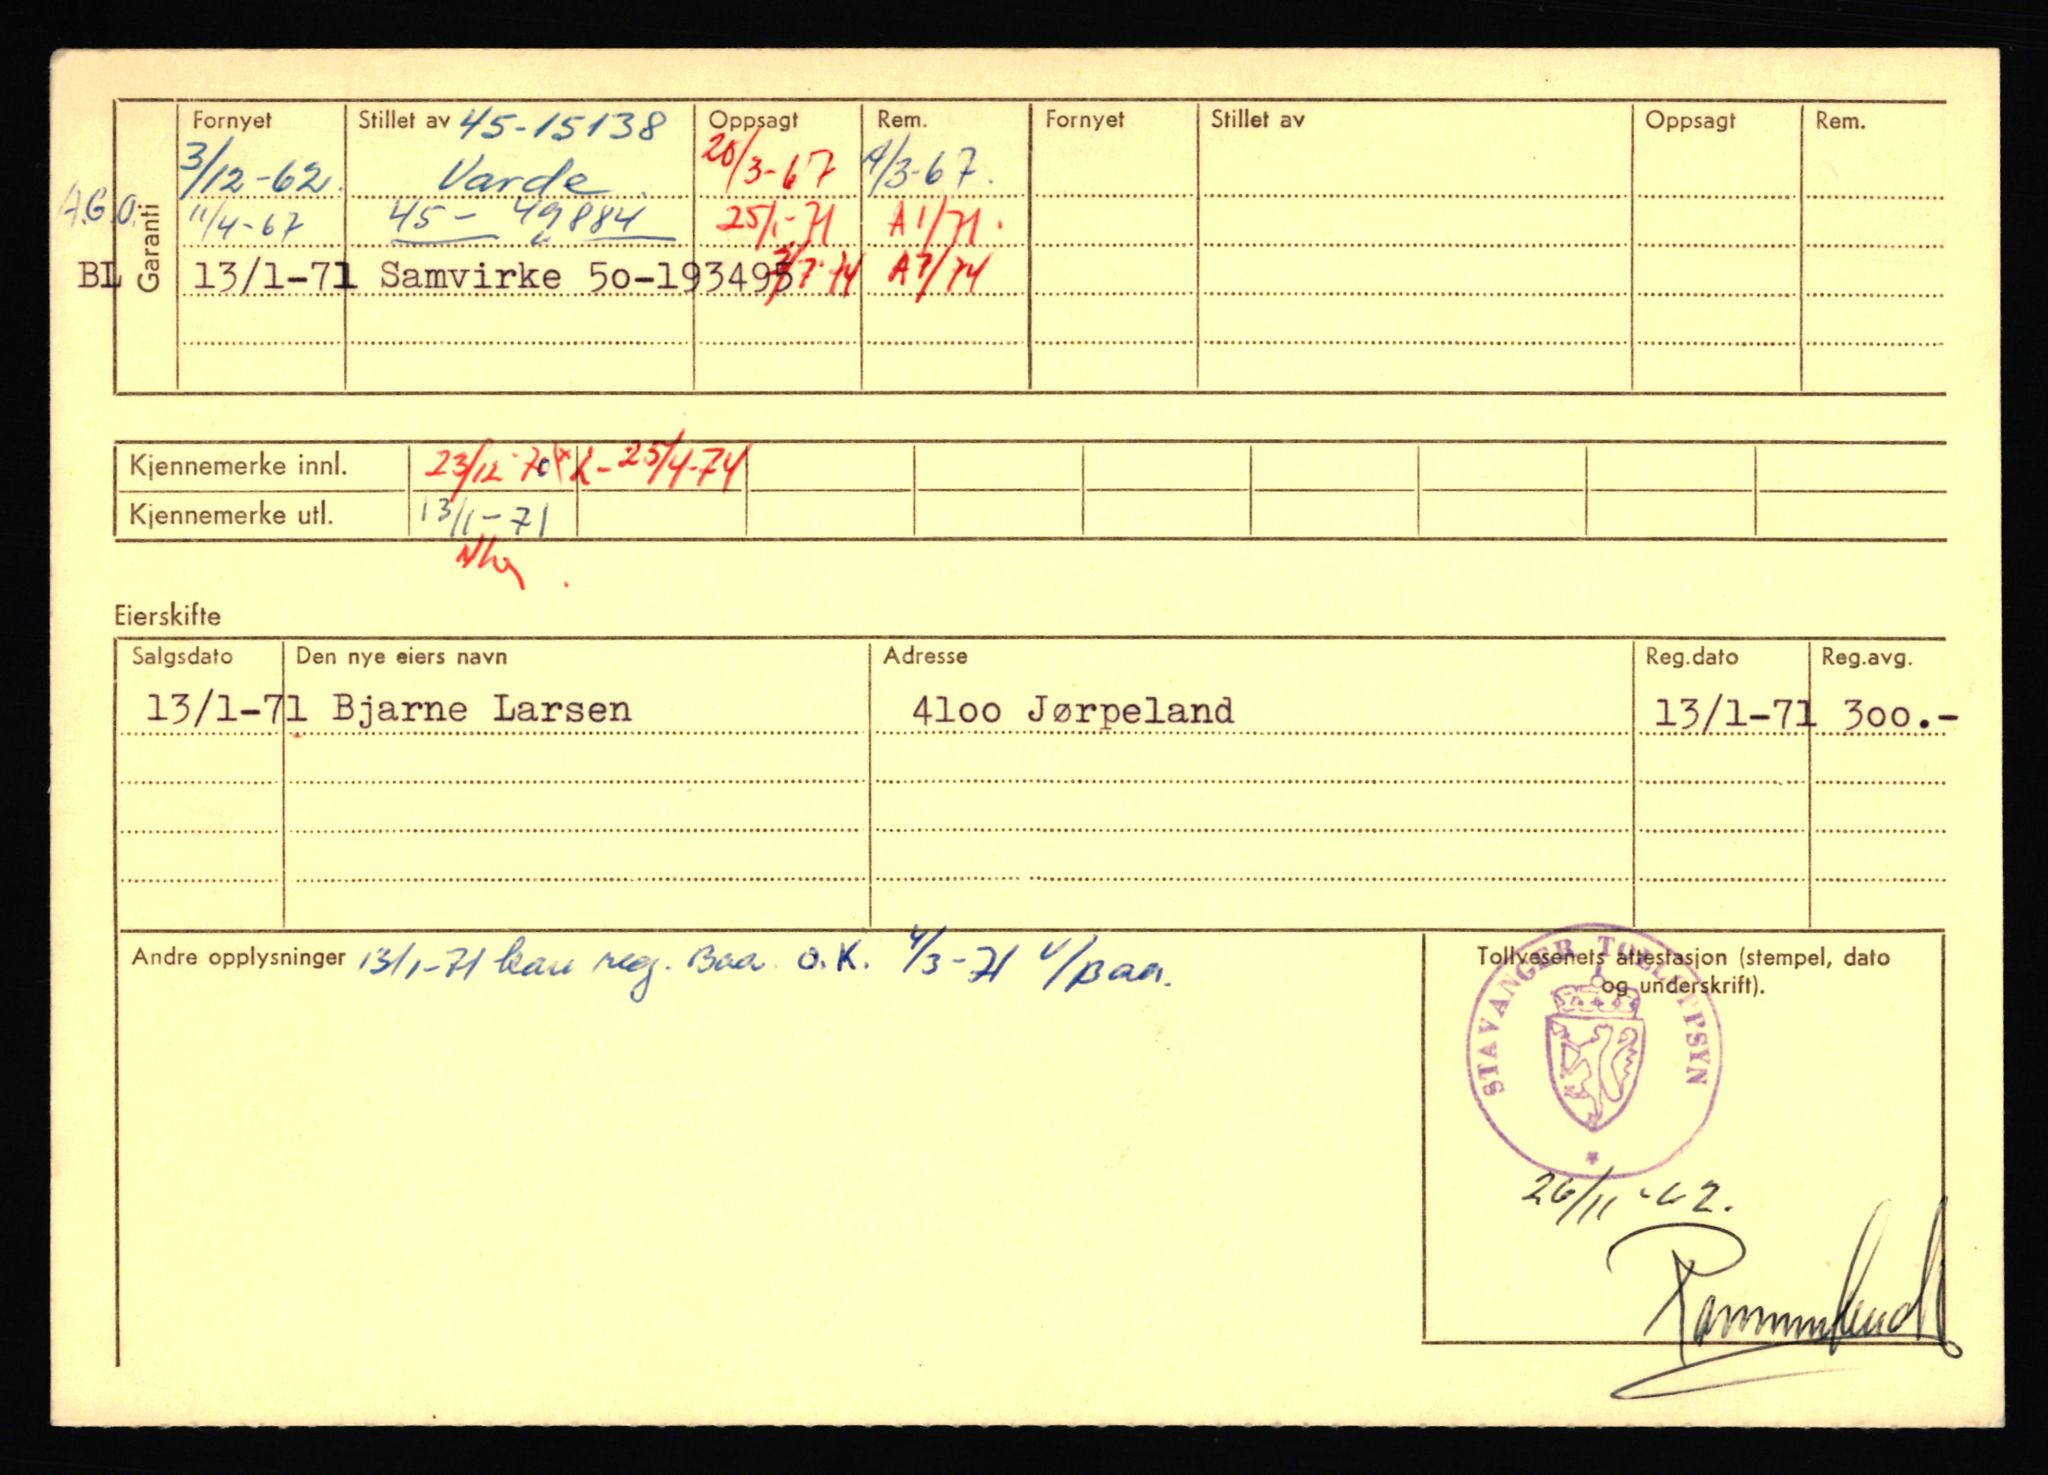 Fornyet Stillet av 45-15138 Oppsagt Rem. Fornyet Stillet av Oppsagt Rem.
3/12-62. Varde. 20/3-67 4/3-67.
A.G.O. 11/4-67 45- 49884 25/1-71 A 1/71.
BL 13/1-71 Samvirke 5o-193495 2/7-74 A 7/74
Garanti
Kjennemerke innl. 23/12-70 25/4-74
Kjennemerke utl. 13/1-71
Eierskifte
Salgsdato Den nye eiers navn Adresse Reg.dato Reg.avg.
13/1-71 Bjarne Larsen 41oo Jørpeland 13/1-71 3oo.-
Andre opplysninger 13/1-71 kan reg. Baa. O.K. 4/3-71 V/Baa.
Tollvesenets attestasjon (stempel, dato
og underskrift).
STAVANGER TOLLOPPSYN
26/11-62.